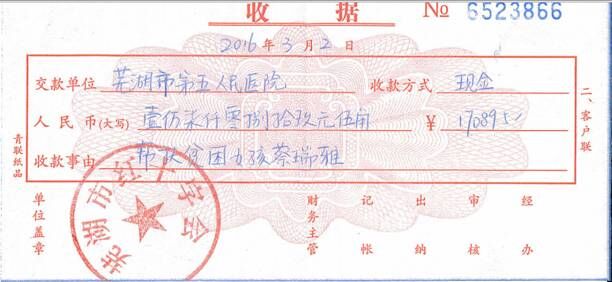 收 据 № 6523866
2016 年 3 月 2 日
交款单位 芜湖市第五人民医院 收款方式 现金
人民币(大写) 壹万柒仟零捌拾玖元伍角 ¥ 17089.5
收款事由 帮扶贫困女孩蔡瑞雅
二、客户联
青联纸品
单位盖章 财务主管 记帐 出纳 审核 经办
芜湖市红十字会